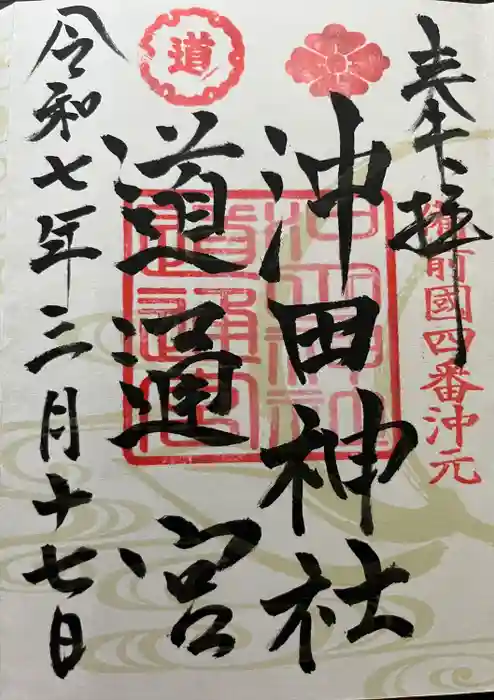 奉拝
備前國四番沖元
沖田神社
道通宮
令和七年三月十七日
道